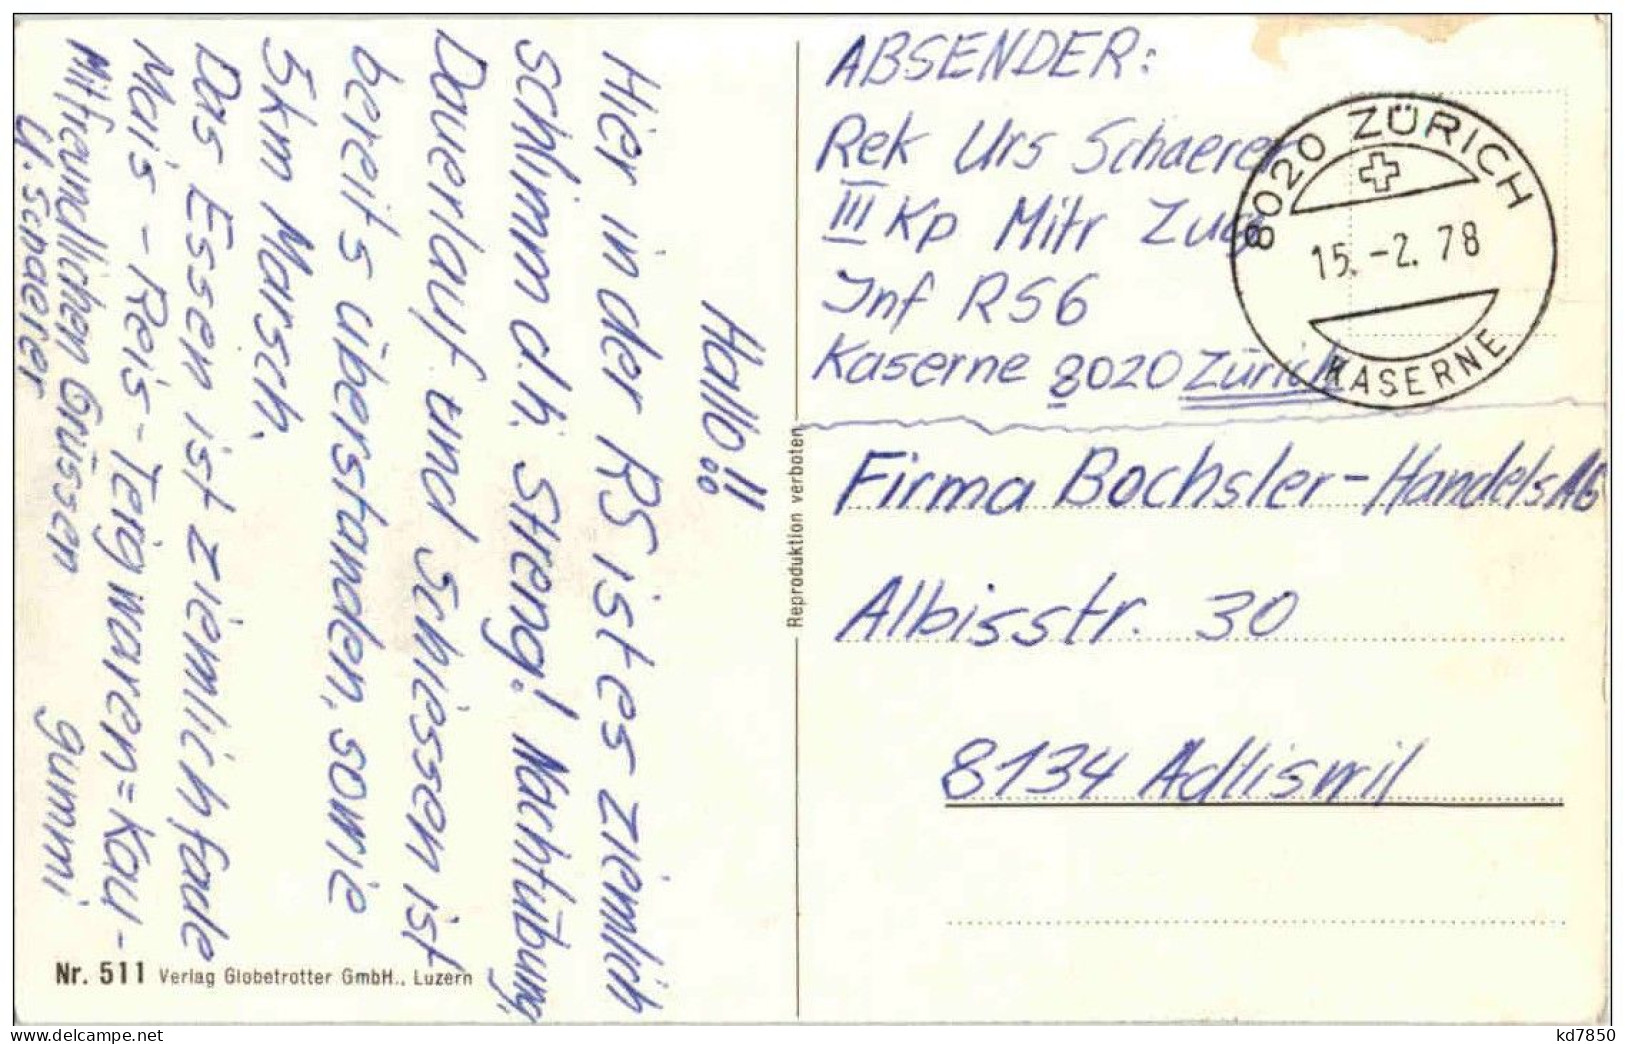 Hallo!!
Hier in der RS ist es ziemlich
schlimm d.h. Streng! Nachtübung,
Dauerlauf und Schiessen ist
bereits überstanden, sowie
5km Marsch.
Das Essen ist ziemlich fade
Mais - Reis - Teigwaren = Kau-
gummi
Mit freundlichen Grüssen
U. Schaerer
Nr. 511 Verlag Globetrotter GmbH., Luzern
Reproduktion verboten
ABSENDER:
Rek Urs Schaerer
III Kp Mitr Zug
Inf RS 6
Kaserne 8020 Zürich
8020 ZÜRICH
15.-2.78
KASERNE
Firma Bochsler-Handels AG
Albisstr. 30
8134 Adliswil
kd7850